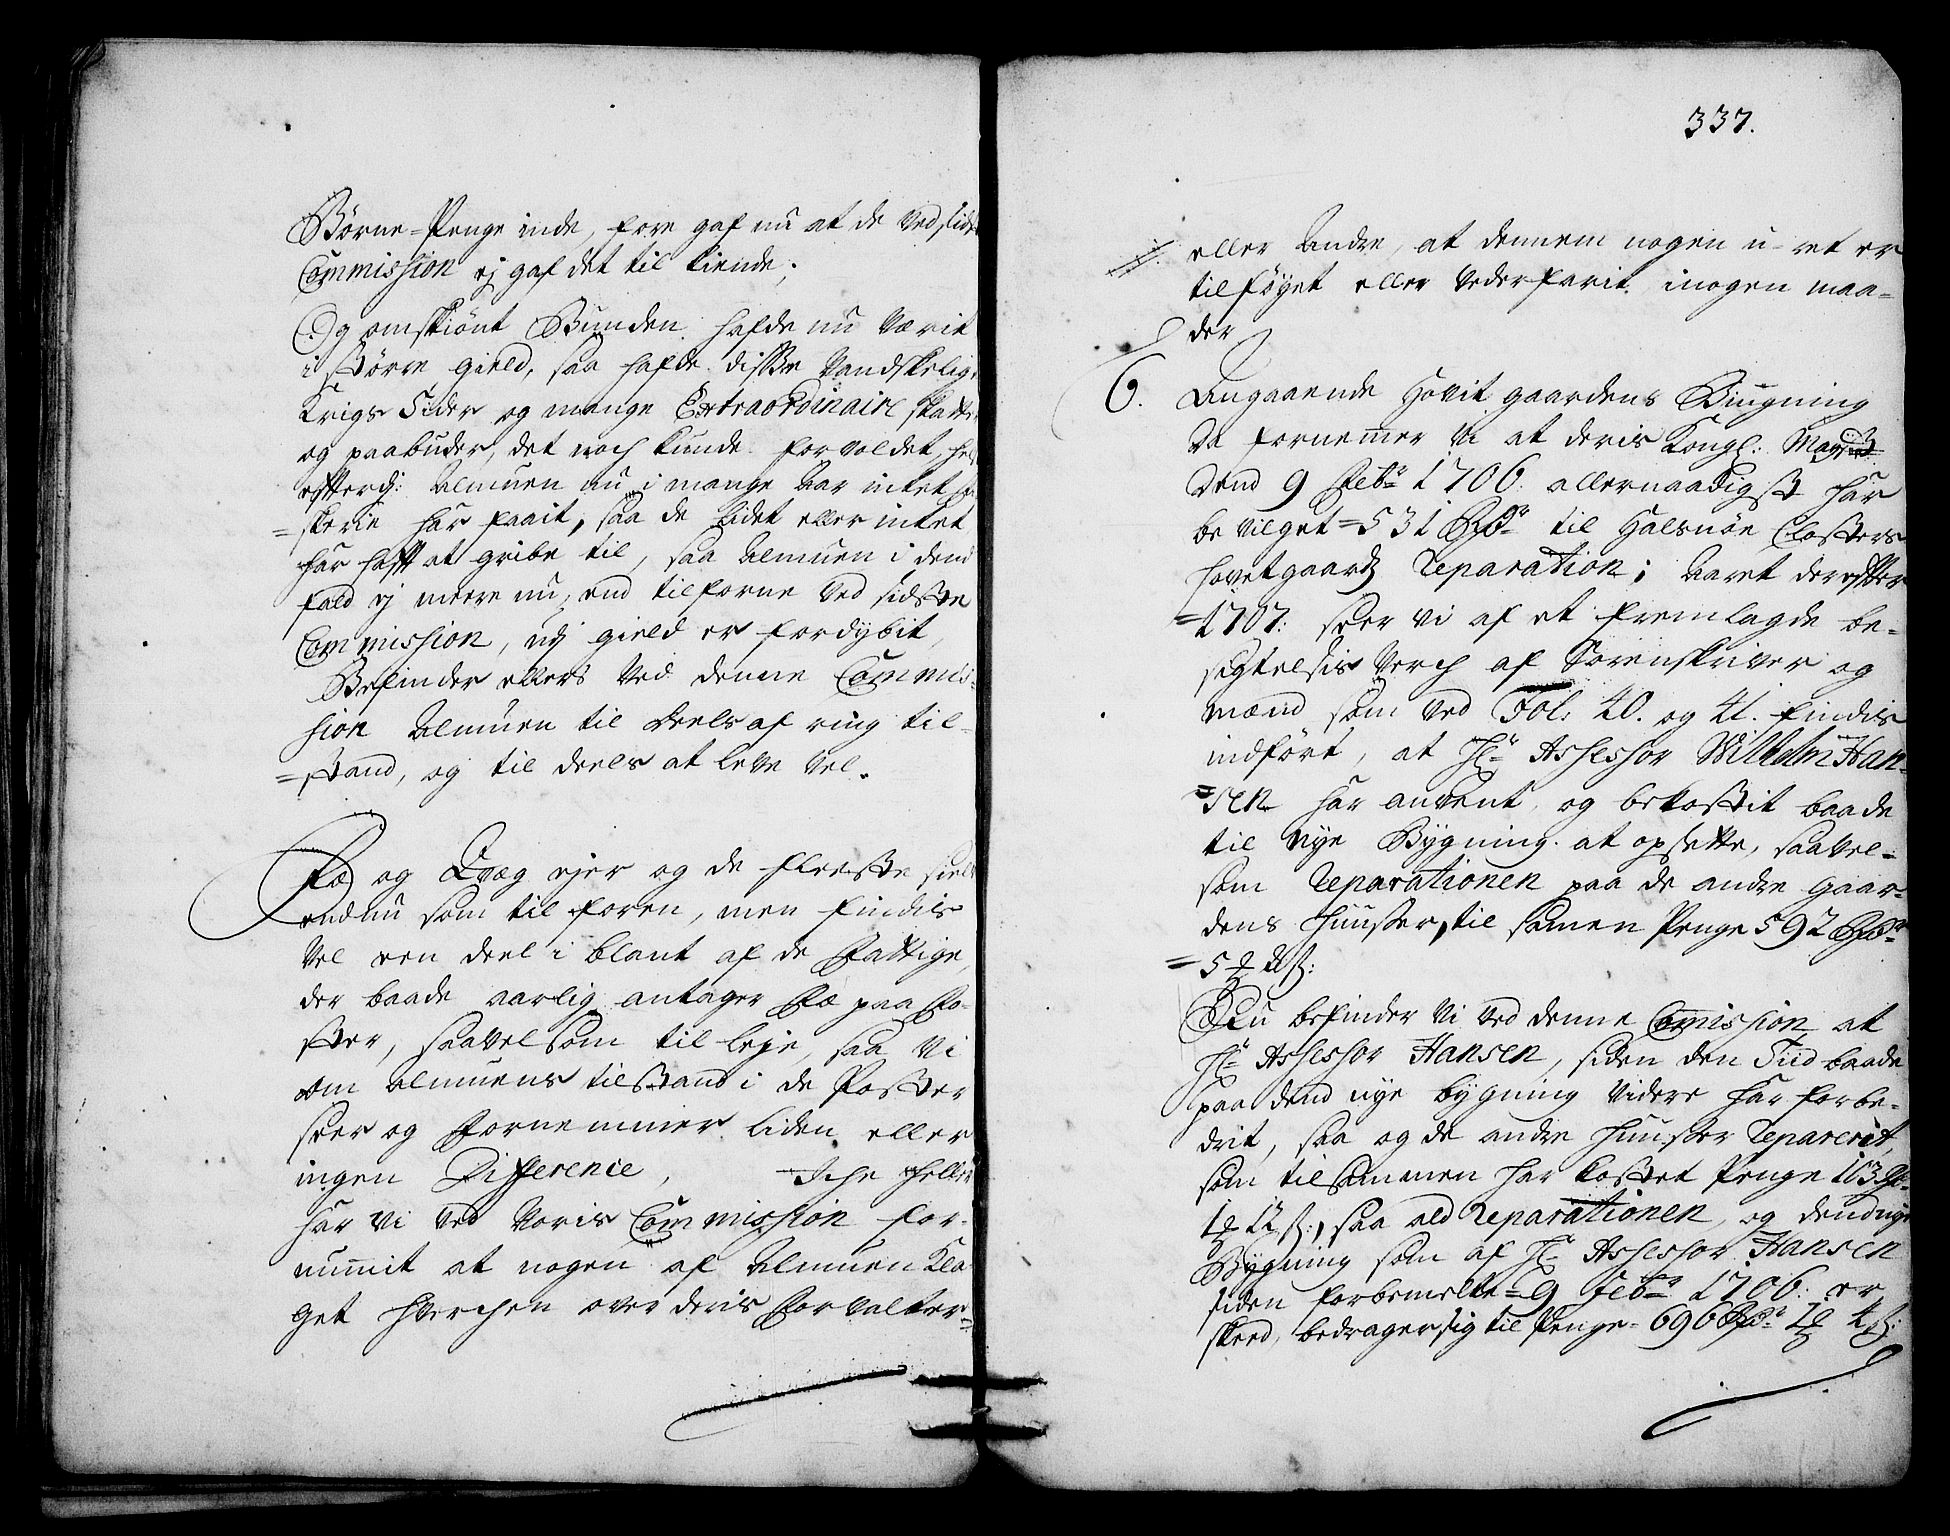 Børne-Penge inde, fore gaf nu at de ved sidst
Commission ej gaf det til kiende;
Og omskiønt Bunden hafde nu Værit
i større gield, saa hafde disse Vandskelige
Krigs Tider og mange Extraordinaire skatter
og paabuder, det noch kunde forvoldet, hel
efterdj: Almuen nu i mange Aar intet fi-
=skerie har faait, saa de lidet eller intet
har hafft at gribe til, saa Almuen i dend
fald ej meere nu, end tilforne ved sidste
Commission, udj gield er fordybit,
Befinder ellers ved denne Commis-
sion Almuen til deels af ring til-
=stand, og til deels at leve vel.
Fæ og Qvæg ejer og de fleeste sielf
endnu som til foren, men findis
vel een deel i blant af de Fattige,
der baade aarlig antager Fæ paa Fo-
ster, saavelsom til leje, saa vi
om Almuens tilstand i de Poster
seer og fornemmer liden eller
ingen Difference, Iche heller
har vi ved voris Commission for-
nummit at nogen af Almuen kla-
get hverchen over deris Forvalter=
337.
//. eller Andre, at dennem nogen u-ret er
tilføyet eller vederfarit i nogen maa-
der
6. Angaaende Hovit gaardens Biugning
Da fornemmer vi at deris Kongl: Mayst
Dend 9 Febr 1706 allernaadigst har
bevilget = 531 Rdr til Halsnöe Closters
hovetgaards Reparation; Aaret derefter
=1707: seer vi af et fremlagde be-
sigtelsis Verch af Sorenskriver og
mænd som ved Fol: 40. og 41. findis
indført, at Hr Assessor Wilhelm Han-
=sen har anvent og bekostit baade
til nye Bygning at opsette, saavel-
som Reparationen paa de andre gaar-
dens Huusser, til samen Penge 592 Rdr
=5 ß:
Nu befinder vi ved denne Commission at
Hr Assessor Hansen, siden den Tiid baade
paa dend nye bygning videre har forbe-
drit, saa og de andre Huusser Reparerit,
som tilsammen har kostet Penge 103 Rdr
1 12 ß:, saa ald Reparationen, og dend nye
Bygning som af Hr Assessor Hansen
siden forbemelte = 9 Febr 1706: er
skeed, bedrager sig til Penge = 696 Rdr 1 4 ß: